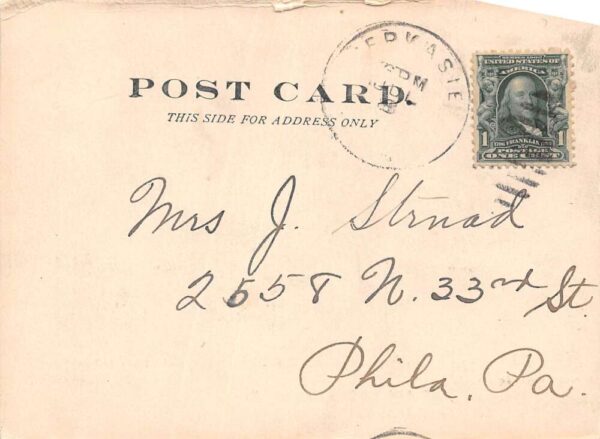 POST CARD.
THIS SIDE FOR ADDRESS ONLY
PM
UNITED STATES OF
AMERICA
1 1
FRANKLIN
POSTAGE
ONE CENT
Mrs J. Strnad
2558 N. 33rd St.
Phila, Pa.